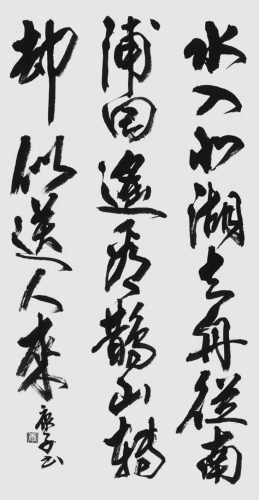 水入北湖去舟從南
浦回遙看鵲山轉
却似送人來